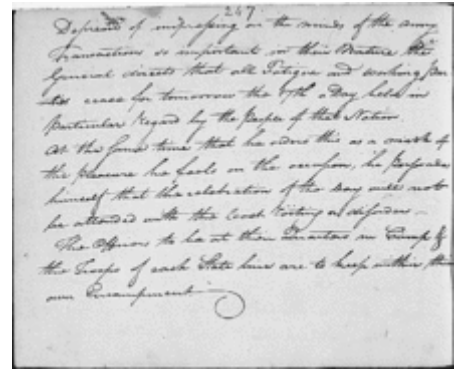 247
Desireous of impressing on the minds of the army
Transactions so important in their Nature the
General directs that all Fatigue and working Par
ties cease for tomorrow the 17th Day held in
Particular Regard by the People of that Nation.
At the same time that he orders this as a mark of
the pleasure he feels on the occasion, he Perswades
himself that the celebration of the day will not
be attended with the least Rioting or disorder —
The Officers to be at their Quarters in Camp &
the Troops of each State line are to keep within their
own Encampment